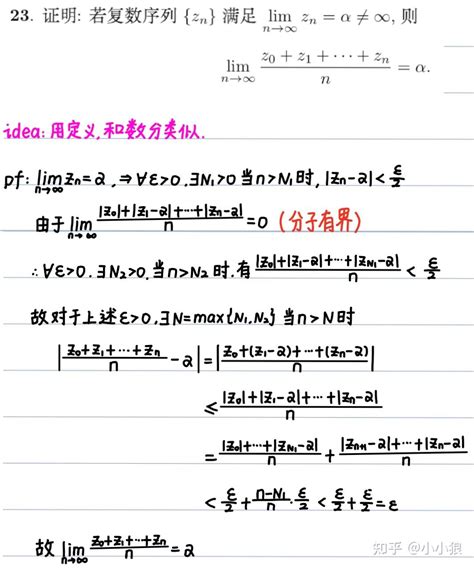 23. 证明: 若复数序列 {zₙ} 满足 lim_{n→∞} zₙ = α ≠ ∞, 则
lim_{n→∞} (z₀ + z₁ + ⋯ + zₙ)/n = α.
idea: 用定义, 和数分类似.
pf: lim_{n→∞} zₙ = 2, ⇒ ∀ε>0, ∃N₁>0 当n>N₁时, |zₙ-2| < ε/2
由于 lim_{n→∞} (|z₀|+|z₁-2|+⋯+|zₙ-2|)/n = 0 (分子有界)
∴ ∀ε>0. ∃N₂>0, 当n>N₂时. 有 (|z₀|+|z₁-2|+⋯+|z_{N₁}-2|)/n < ε/2
故对于上述ε>0, ∃N=max{N₁,N₂} 当n>N时
|(z₀+z₁+⋯+zₙ)/n - 2| = |(z₀+(z₁-2)+⋯+(zₙ-2))/n|
≤ (|z₀|+|z₁-2|+⋯+|zₙ-2|)/n
= (|z₀|+⋯+|z_{N₁}-2|)/n + (|z_{N+1}-2|+⋯+|zₙ-2|)/n
< ε/2 + (n-N₁)/n · ε/2 < ε/2 + ε/2 = ε
故 lim_{n→∞} (z₀+z₁+⋯+zₙ)/n = 2
知乎 @小小狼